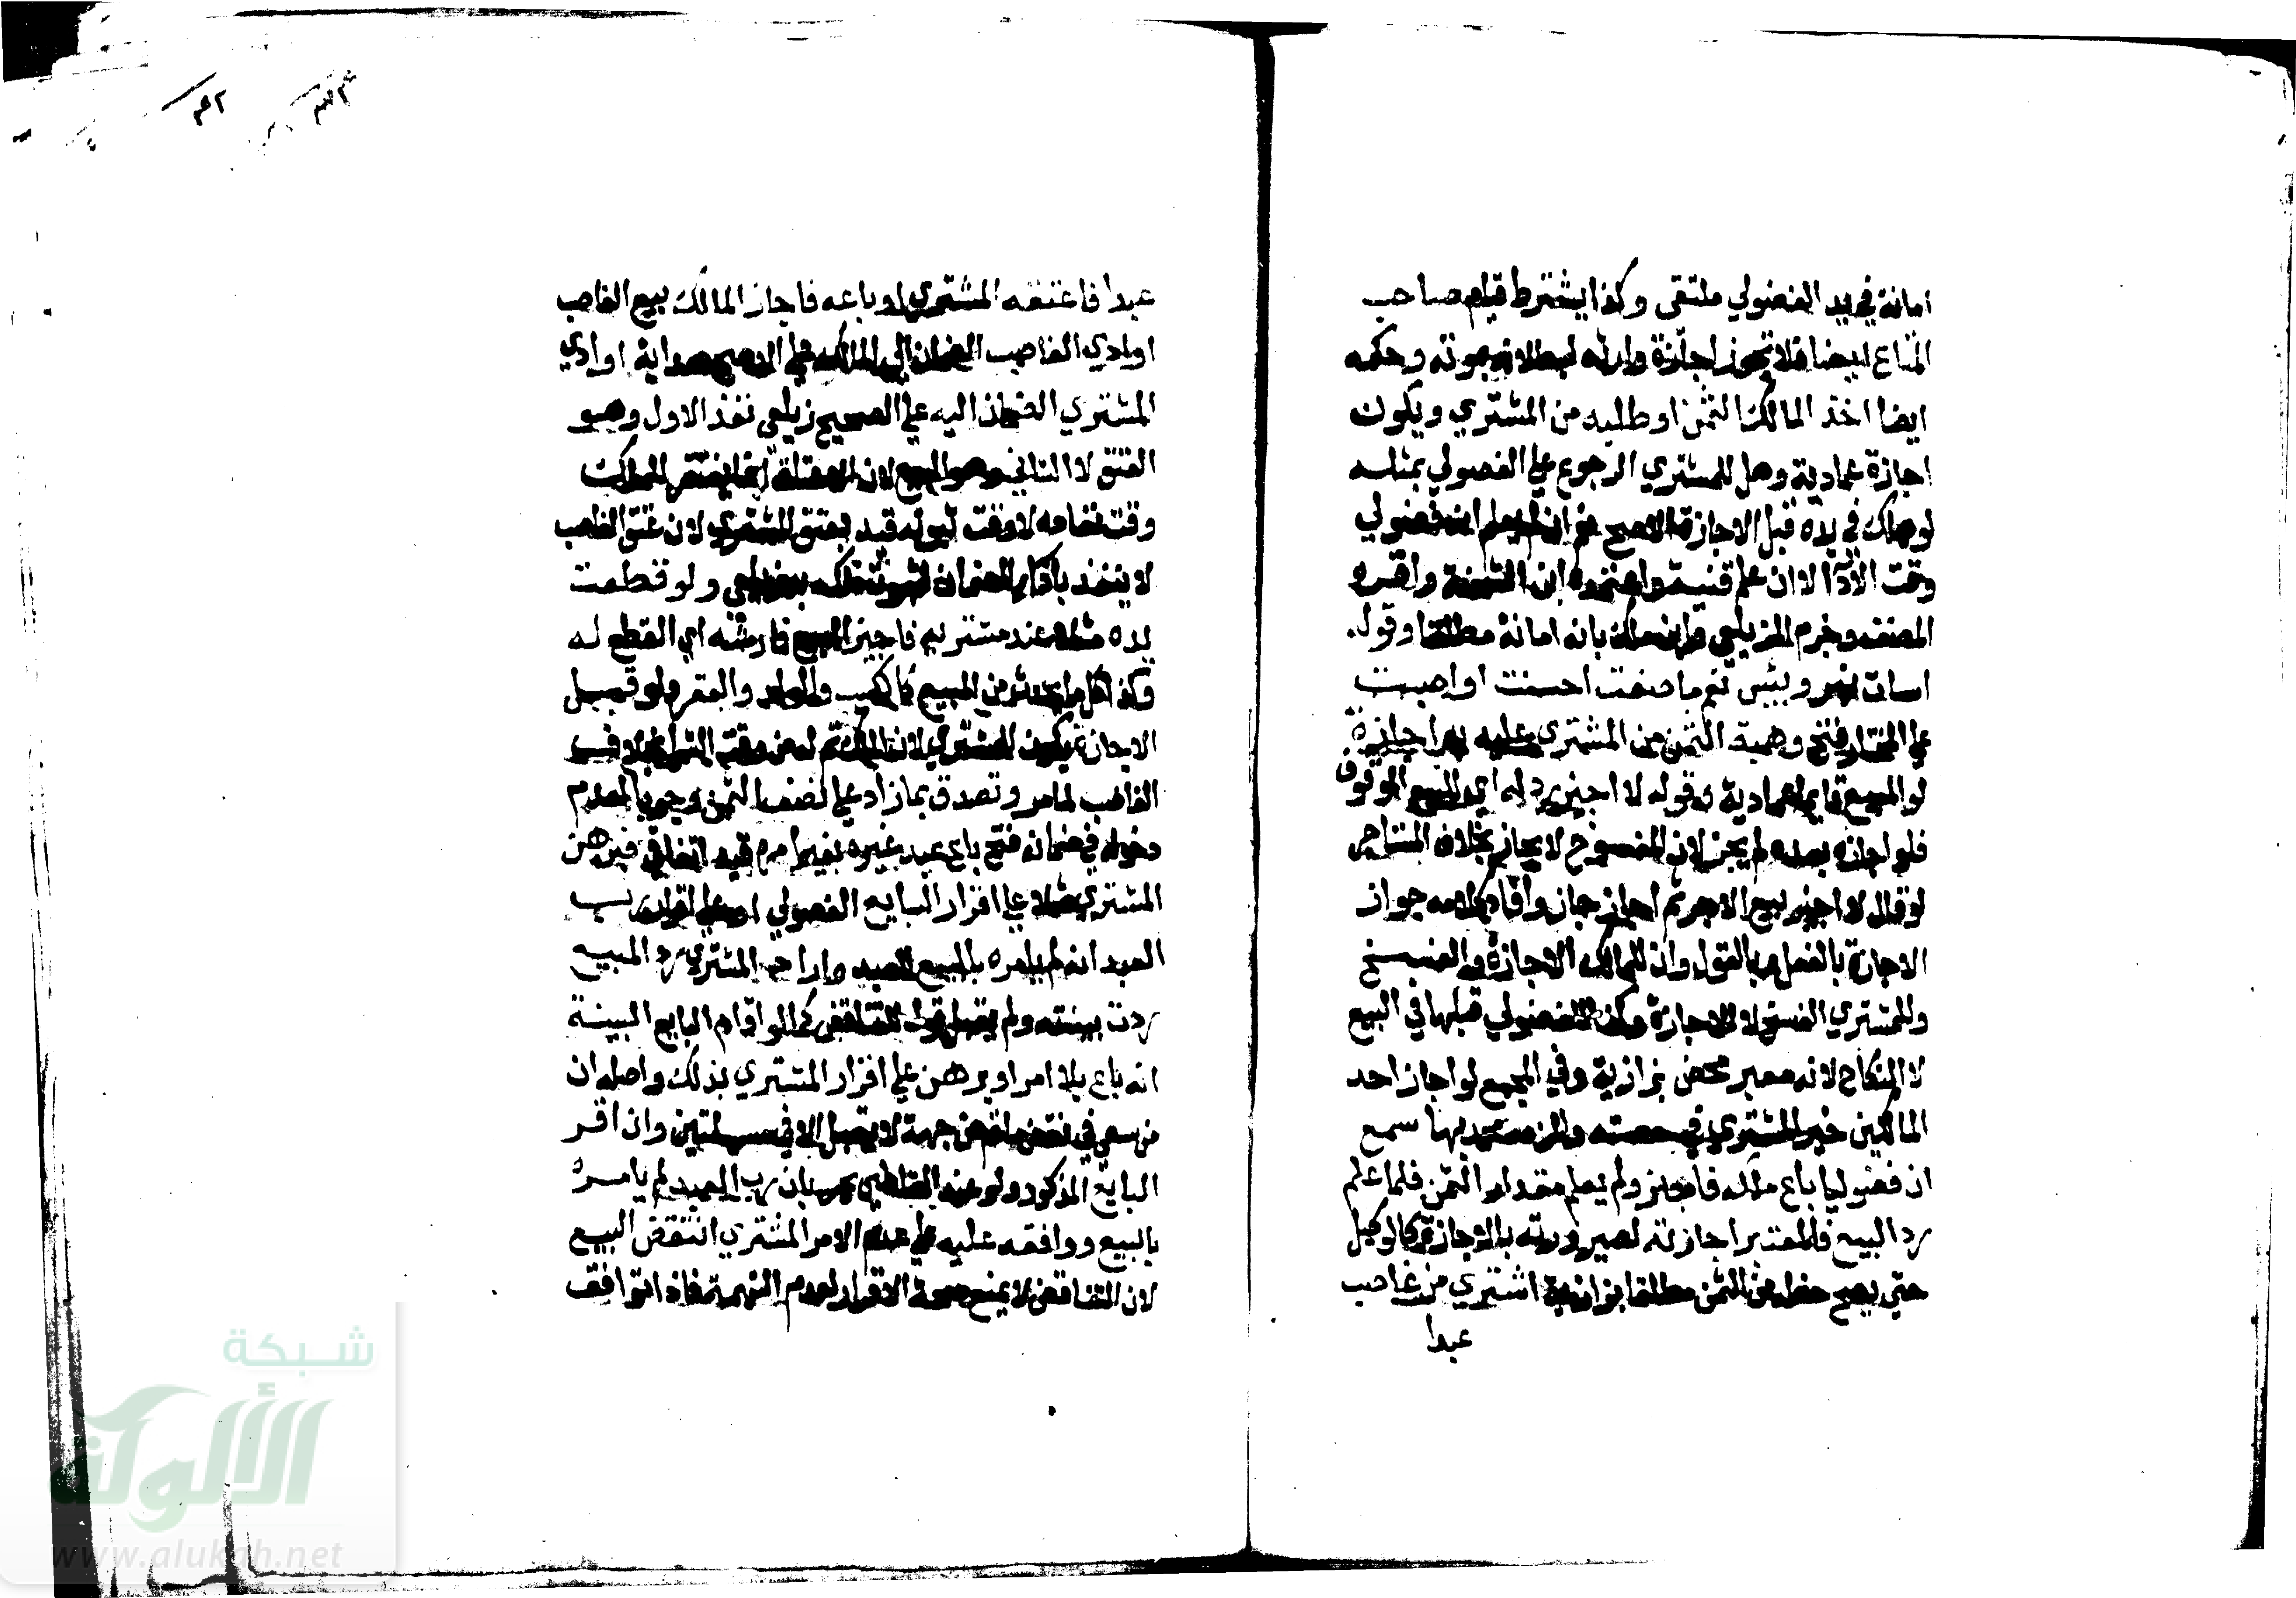 امانة في يد الفضولي ملتقى وكذا يشترط قيام صاحب
المتاع ايضا فلا تجوز اجازة وارثه لبطلانه بموته وحكمه
ايضا اخذ المالك الثمن او طلبه من المشتري ويكون
اجازة عمادية وهل للمشتري الرجوع على الفضولي بمثله
لو هلك في يده قبل الاجازة الاصح نعم ان لم يعلم انه فضولي
وقت الادآ لا ان علم قنية واعتمده ابن الشحنة واقره
المصنف وجزم الزيلعي وابن ملك بانه امانة مطلقا وقوله
اسات نهر وبئس نعم ما صنعت احسنت او اصبت
على المختار فتح وهبة الثمن من المشتري عليه به اجازة
لو المبيع قايما عمادية وقوله لا اجيز رد له اي للبيع الموقوف
فلو اجازه بعده لم يجز لان المفسوخ لا يجاز بخلاف المستاجر
لو قال لا اجيز بيع الاجر ثم اجاز جاز وافاد كلامه جواز
الاجازة بالفعل وبالقول وان للمالك الاجازة والفسخ
وللمشتري الفسخ لا الاجازة وكذا للفضولي قبلها في البيع
لا النكاح لانه معبر محض بزازية وفي المجمع لو اجاز احد
المالكين خير المشتري في حصته والزمه محمد بها سمع
ان فضوليا باع ملكه فاجاز ولم يعلم مقدار الثمن فلما علم
رد البيع فالمعتبر اجازته لصيرورته بالاجازة كالوكيل
حتى يصح حطه من الثمن مطلقا بزازية اشترى من غاصب
عبدا
عبدا فاعتقه المشتري او باعه فاجاز المالك بيع الغاصب
او ادى الغاصب الضمان الى المالك على الاصح هداية او ادى
المشتري الضمان اليه على الصحيح زيلعي نفذ الاول وهو
العتق لا الثاني وهو البيع لان الاعتاق انما يفتقر للملك
وقت نفاذه لا وقت ثبوته قيد بعتق المشتري لان عتق الغاصب
لا ينفذ باداء الضمان لثبوت ملكه به زيلعي ولو قطعت
يده مثلا عند مشتريه فاجيز البيع فارشه اي القطع له
وكذا كل ما يحدث من المبيع كالكسب والولد والعقر ولو قبل
الاجازة يكون للمشتري لان الملك تم له من وقت الشرا بخلاف
الغاصب لما مر وتصدق بما زاد على نصف الثمن وجوبا لعدم
دخوله في ضمانه فتح باع عبد غيره بغير امره قيد اتفاقي فبرهن
المشتري مثلا على اقرار البايع الفضولي او على اقرار رب
العبد انه لم يامره بالبيع للعبد واراد المشتري رد المبيع
ردت بينته ولم يقبل قوله للتناقض كما لو اقام البايع البينة
انه باع بلا امر او برهن على اقرار المشتري بذلك واصله ان
من سعى في نقض ما تم من جهته لا يقبل الا في مسئلتين وان اقر
البايع المذكور ولو عند القاضي بان رب العبد لم يامره
بالبيع ووافقه عليه على عدم الامر المشتري انتقض البيع
لان التناقض لا يمنع صحة الاقرار لعدم التهمة فاذا توافقا
شبكة
الألوكة
www.alukah.net